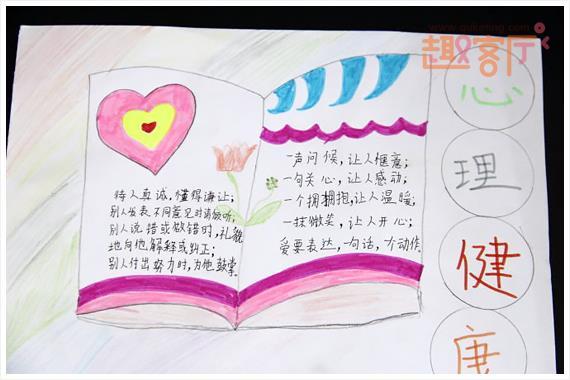 www.qvketing.com
趣客厅
心
理
健
康
待人真诚,懂得谦让;
别人发表不同意见时请倾听;
别人说错或做错时,礼貌
地向他解释或纠正;
别人付出努力时,为他鼓掌.
一声问候,让人惬意;
一句关心,让人感动;
一个拥拥抱,让人温暖;
一抹微笑,让人开心;
爱要表达,一句话,个动作